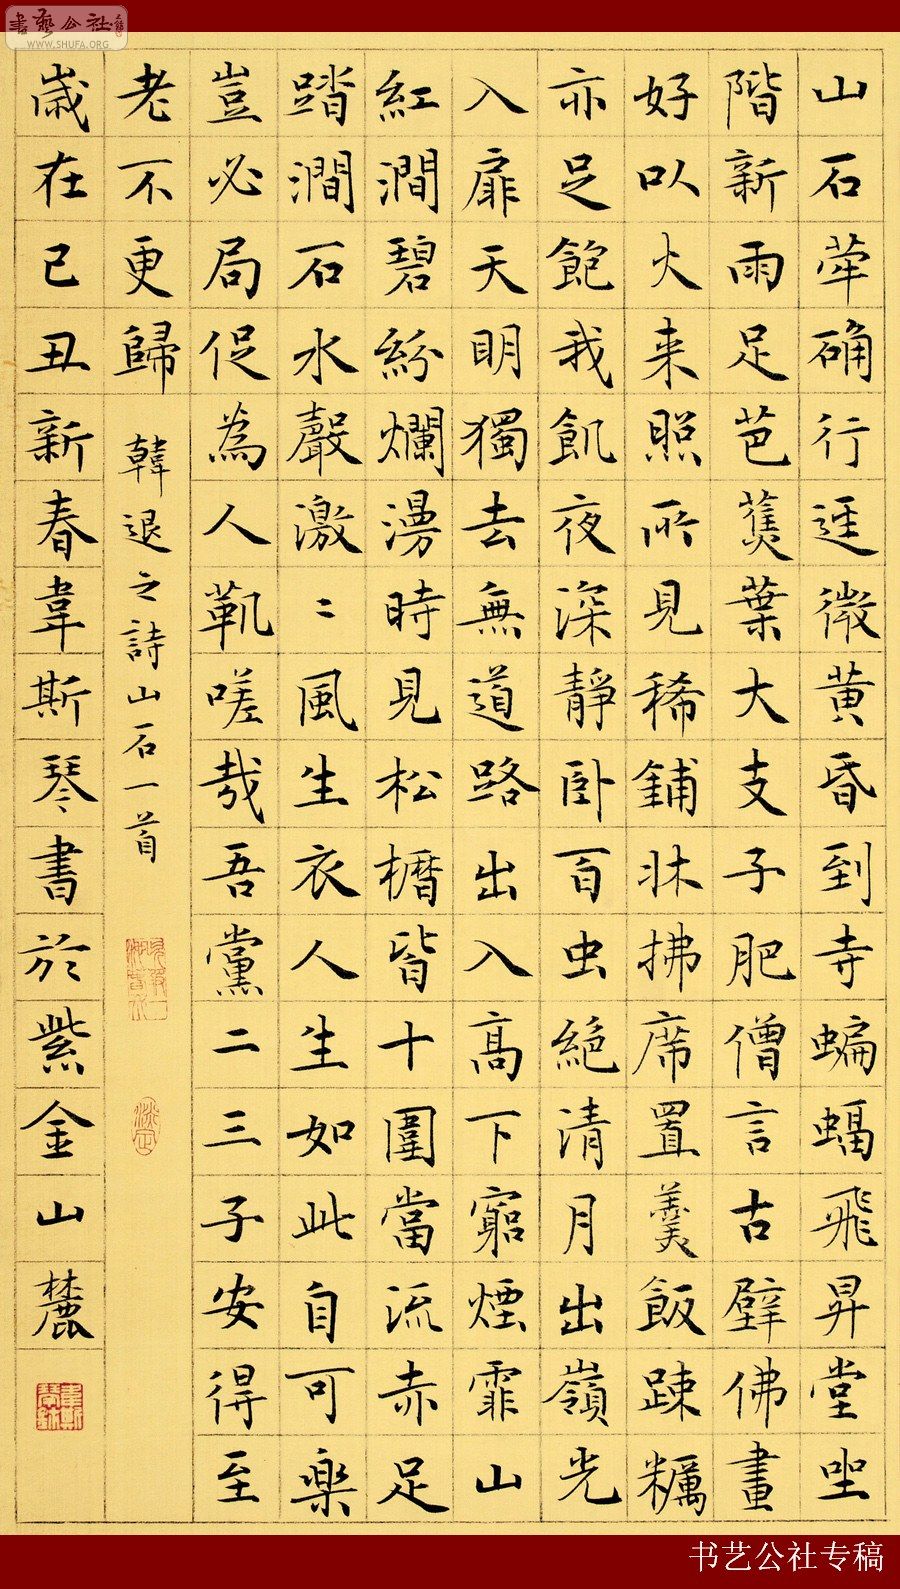 书艺公社
WWW.SHUFA.ORG
山石犖确行逕微黄昏到寺蝙蝠飛昇堂坐
階新雨足芭蕉葉大支子肥僧言古壁佛畫
好以火来照所見稀鋪牀拂席置羹飯疎糲
亦足飽我飢夜深静卧百虫絶清月出嶺光
入扉天明獨去無道路出入髙下窮煙霏山
紅澗碧紛爛漫時見松櫪皆十圍當流赤足
踏澗石水聲激〻風生衣人生如此自可樂
豈必局促為人鞿嗟哉吾黨二三子安得至
老不更歸
韓退之詩山石一首
歳在己丑新春韋斯琴書於紫金山麓
书艺公社专稿